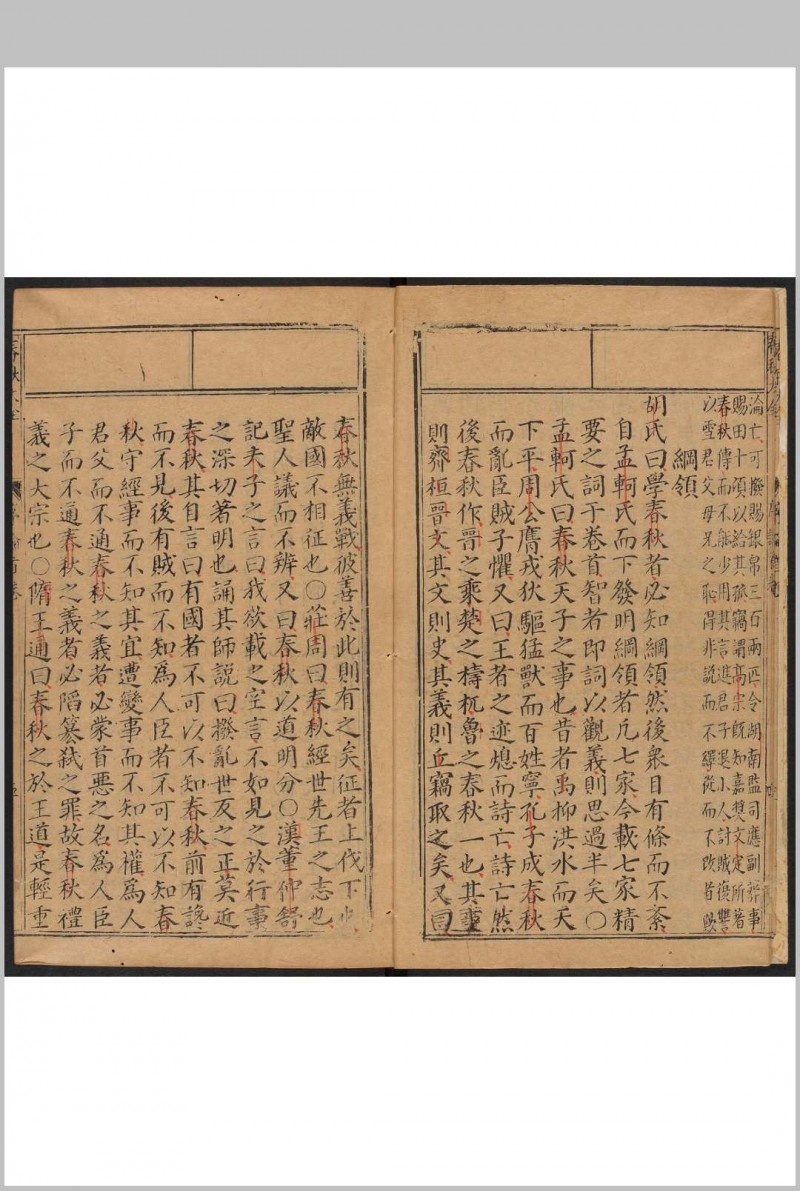 淪亡可撥賜銀帛三百兩匹令湖南監司應副葬事
賜田十頃以給其孤竊謂高宗旣知嘉奬文定所著
春秋傳而不能少用其言進君子退小人討賊復讐
以雪君父母兄之恥得非說而不繹從而不改者歟
綱領
胡氏曰學春秋者必知綱領然後衆目有條而不紊
自孟軻氏而下發明綱領者凡七家今載七家精
要之詞于卷首智者即詞以觀義則思過半矣〇
孟軻氏曰春秋天子之事也昔者禹抑洪水而天
下平周公膺戎狄驅猛獸而百姓寧孔子成春秋
而亂臣賊子懼又曰王者之迹熄而詩亡詩亡然
後春秋作晉之乘楚之檮杌魯之春秋一也其事
則齊桓晉文其文則史其義則丘竊取之矣又曰
春秋無義戰彼善於此則有之矣征者上伐下也
敵國不相征也〇莊周曰春秋經世先王之志也
聖人議而不辨又曰春秋以道明分〇漢董仲舒
記夫子之言曰我欲載之空言不如見之於行事
之深切著明也誦其師說曰撥亂世反之正莫近
春秋其自言曰有國者不可以不知春秋前有讒
而不見後有賊而不知爲人臣者不可以不知春
秋守經事而不知其宜遭變事而不知其權爲人
君父而不通春秋之義者必蒙首惡之名爲人臣
子而不通春秋之義者必陷簒弒之罪故春秋禮
義之大宗也〇隋王通曰春秋之於王道是輕重